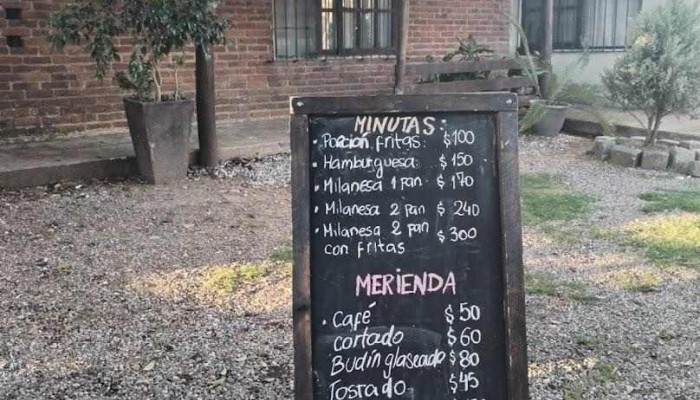 MINUTAS:
• Porción fritas: $100
• Hamburguesa: $150
• Milanesa 1 pan: $170
• Milanesa 2 pan $240
• Milanesa 2 pan $300
con fritas
MERIENDA
• Café $50
cortado $60
Budín glaseado $80
Tosrado $45